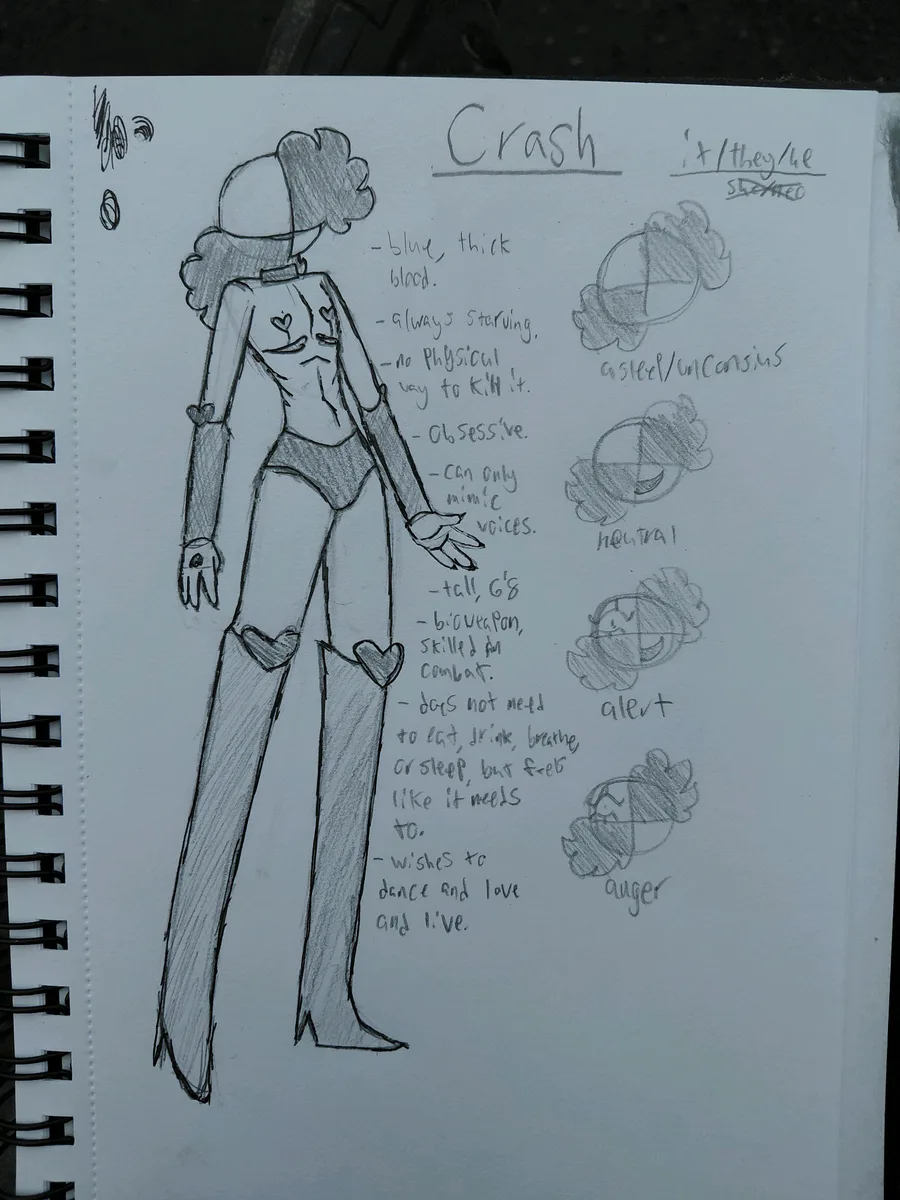 Crash
it/they/he
- blue, thick
blood.
- always starving.
- no physical
way to kill it.
- obsessive.
- can only
mimic
voices.
- tall, 6'8
- bioweapon,
skilled in
combat.
- does not need
to eat, drink, breathe,
or sleep, but feels
like it needs
to.
- wishes to
dance and love
and live.
asleel/unconsius
neutral
alert
anger